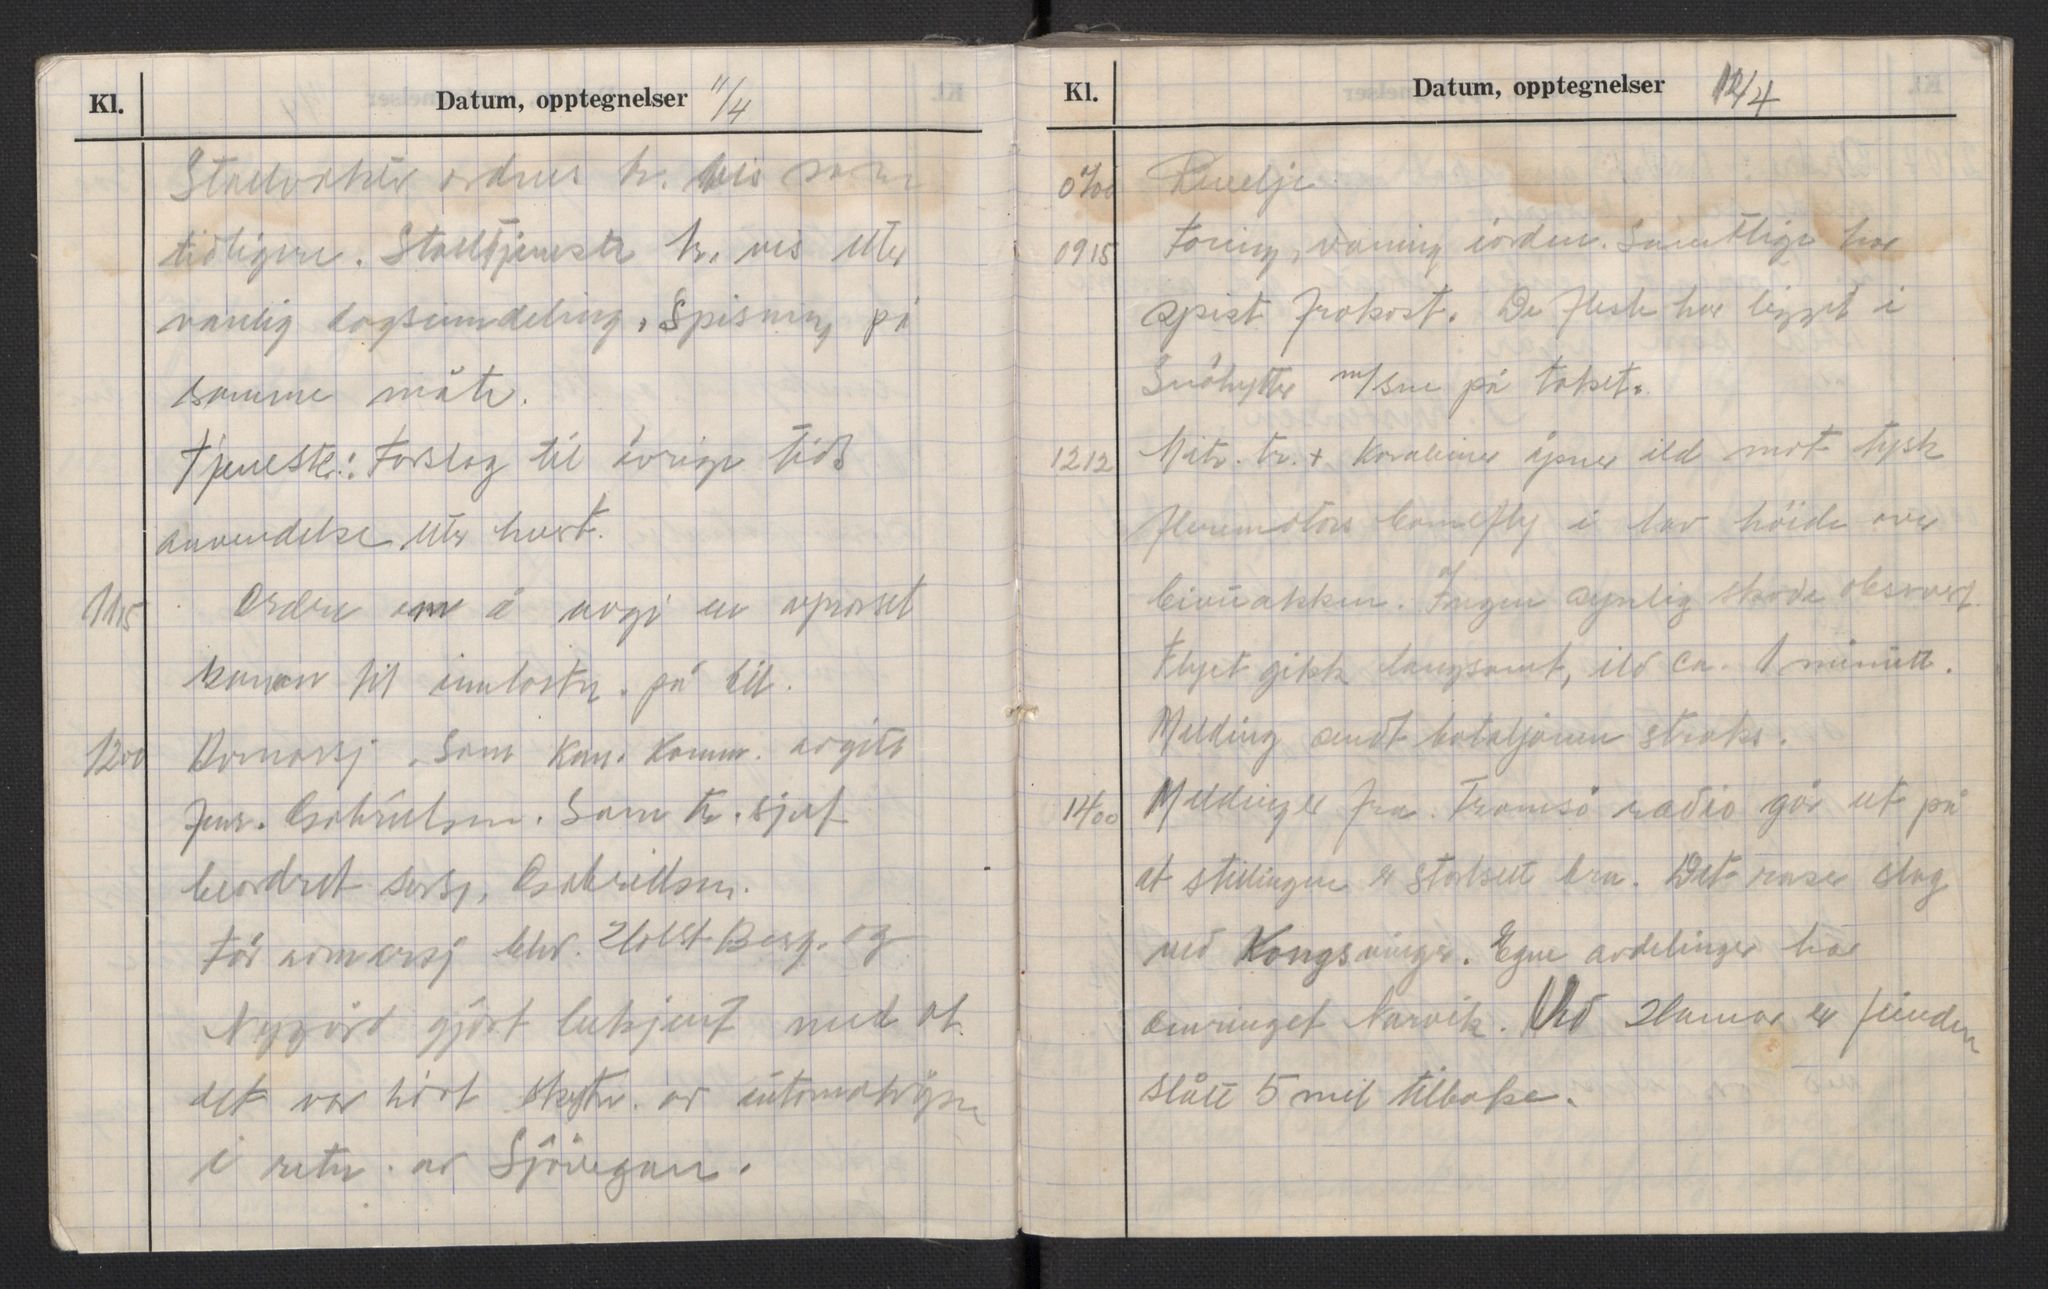 Kl. Datum, opptegnelser 11/4
Stallvakter ordnes tr. vis som
tidligere. Stalltjeneste tr. vis etter
vanlig dagsinndeling. Spisning på
samme måte.
Tjeneste: Forslag til övrige tids
anvendelse etter hvert.
1115 Ordre om å avgi en
kanon til innlastn. på bil.
1200 Avmarsj. Som Kan. Komm. avgitt
Gabrielsen. Som tr. sjef
beordret sersj. Gabrielsen.
Før avmarsj blev Holst Berg. og
Nygård gjört bekjent med at
det var hört skytn. av
i retn. av Sjövegan.
Kl. Datum, opptegnelser 12/4
0700 Revelje.
0915 Foring, vaning iorden. Samtlige har
spist frokost. De fleste har ligget i
Snöhytter m/sne på taket.
1212 Mitr. tr. + Karabiner åpner ild mot tysk
flermotors bombefly i lav höide over
bivuakken. Ingen synlig skade observert.
Flyet gikk langsomt, ild ca. 1 minutt.
Melding sendt bataljonen straks.
1400 Meldinger fra Tromsö radio går ut på
at stillingen er stort sett bra. Det raser slag
ved Kongsvinger. Egne avdelinger har
omringet Narvik. Ved Hamar er fienden
slått 5 mil tilbake.